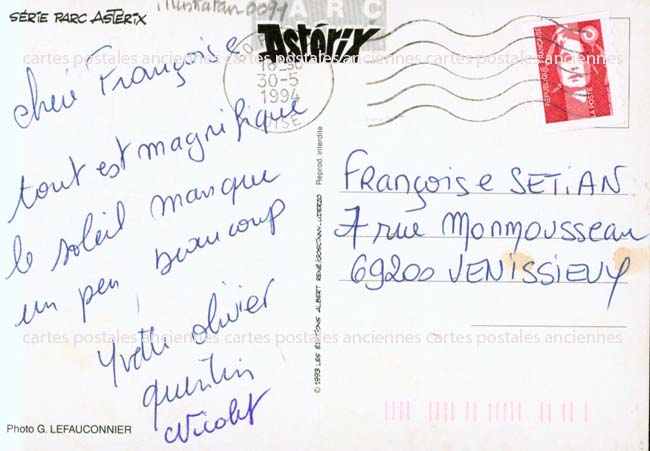 SÉRIE PARC ASTÉRIX
PARC
Astérix
16-30
30-5
1994
OISE
RÉPUBLIQUE FRANÇAISE
LA POSTE
cartes postales anciennes cartes postales anciennes cartes postales anciennes
chère Françoise
tout est magnifique
le soleil manque
un peu, beaucoup
Yvette olivier
quentin
Nicolas
Françoise SETIAN
7 rue Monmousseau
69200 VENISSIEUX
cartes postales anciennes cartes postales anciennes cartes postales anciennes
Reprod. interdite
© 1993 LES ÉDITIONS ALBERT RENÉ/GOSCINNY-UDERZO
Photo G. LEFAUCONNIER